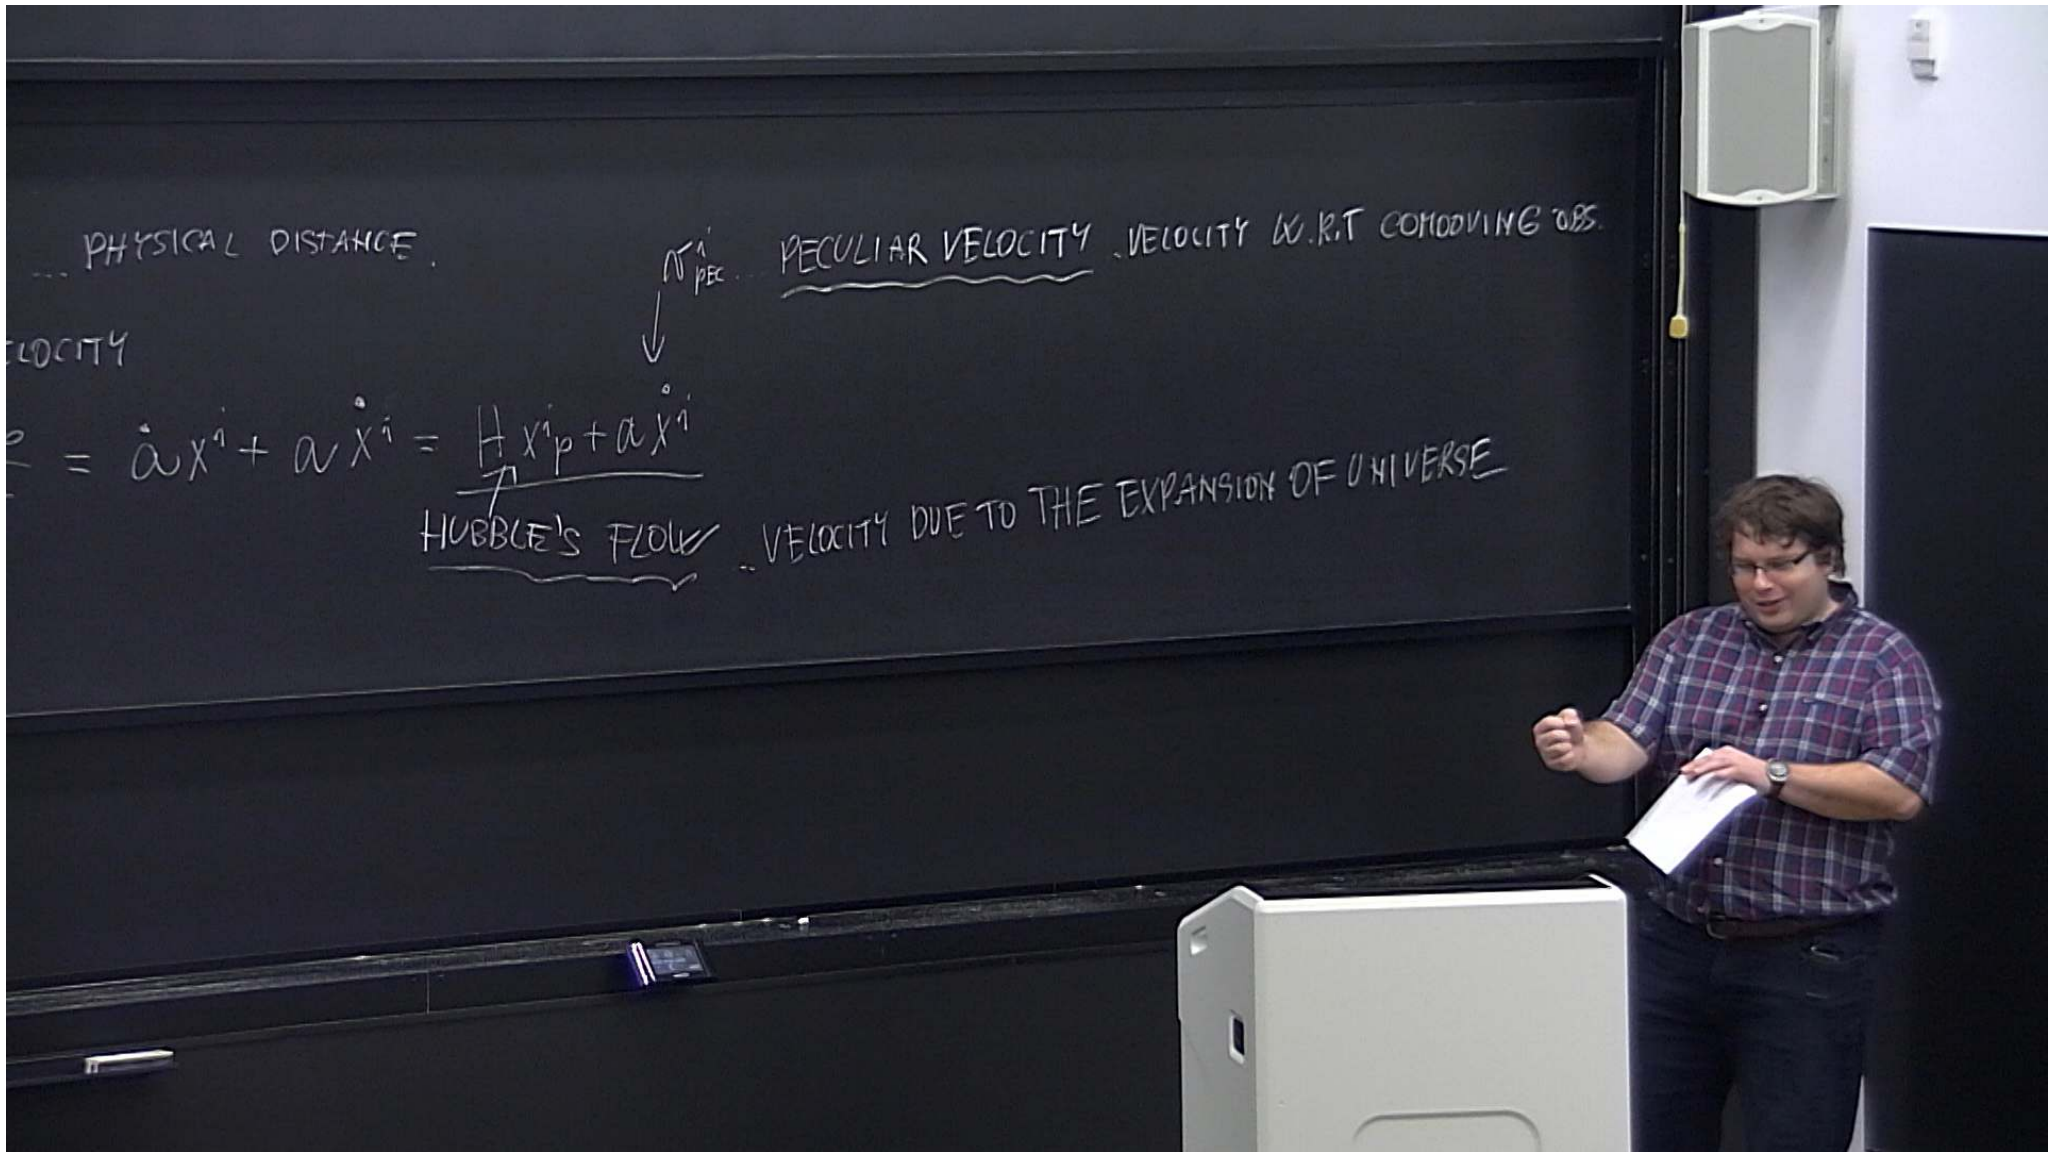 ... PHYSICAL DISTANCE.
v^i_PEC ... PECULIAR VELOCITY . VELOCITY W.R.T COMOOVING OBS.
ELOCITY
= ȧx^i + aẋ^i = Hx^i_p + aẋ^i
HUBBLE'S FLOW ... VELOCITY DUE TO THE EXPANSION OF UNIVERSE